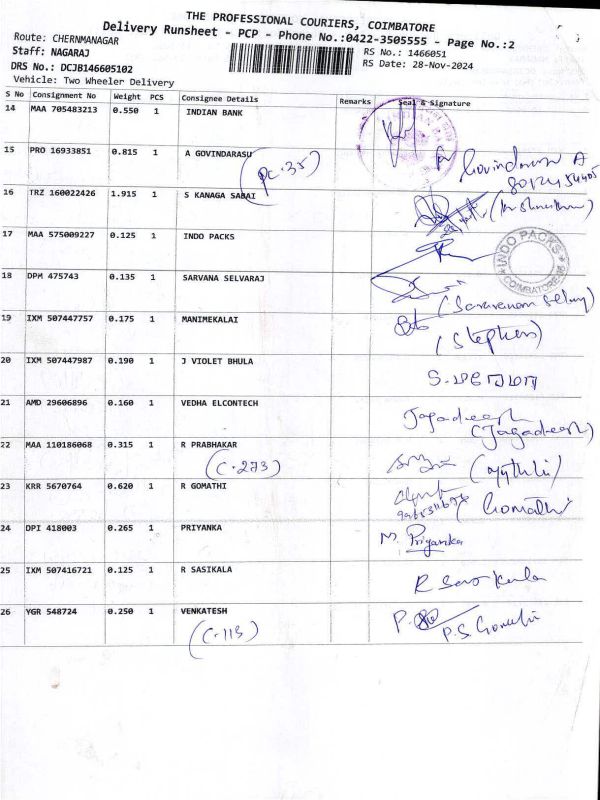 THE PROFESSIONAL COURIERS, COIMBATORE
Delivery Runsheet - PCP - Phone No.:0422-3505555 - Page No.:2
Route: CHERNMANAGAR
RS No.: 1466051
Staff: NAGARAJ
RS Date: 28-Nov-2024
DRS No.: DCJB146605102
Vehicle: Two Wheeler Delivery
S No Consignment No Weight PCS Consignee Details Remarks Seal & Signature
14 MAA 705483213 0.550 1 INDIAN BANK
15 PRO 16933851 0.815 1 A GOVINDARASU
(pc.35) for Govindarasu A
16 TRZ 160022426 1.915 1 S KANAGA SABAI
17 MAA 575009227 0.125 1 INDO PACKS
INDO PACKS COIMBATORE
18 DPM 475743 0.135 1 SARVANA SELVARAJ
19 IXM 507447757 0.175 1 MANIMEKALAI
(Stephen)
20 IXM 507447987 0.190 1 J VIOLET BHULA
21 AMD 29606896 0.160 1 VEDHA ELCONTECH
Jagadeesh
(Jagadeesh)
22 MAA 110186068 0.315 1 R PRABHAKAR
(C.273)
23 KRR 5670764 0.620 1 R GOMATHI
(Gomathi)
24 DPI 418003 0.265 1 PRIYANKA
M. Priyanka
25 IXM 507416721 0.125 1 R SASIKALA
26 YGR 548724 0.250 1 VENKATESH
(C.113)